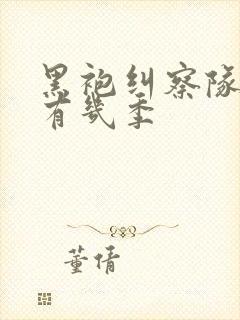 黑袍纠察队
有几季
董倩